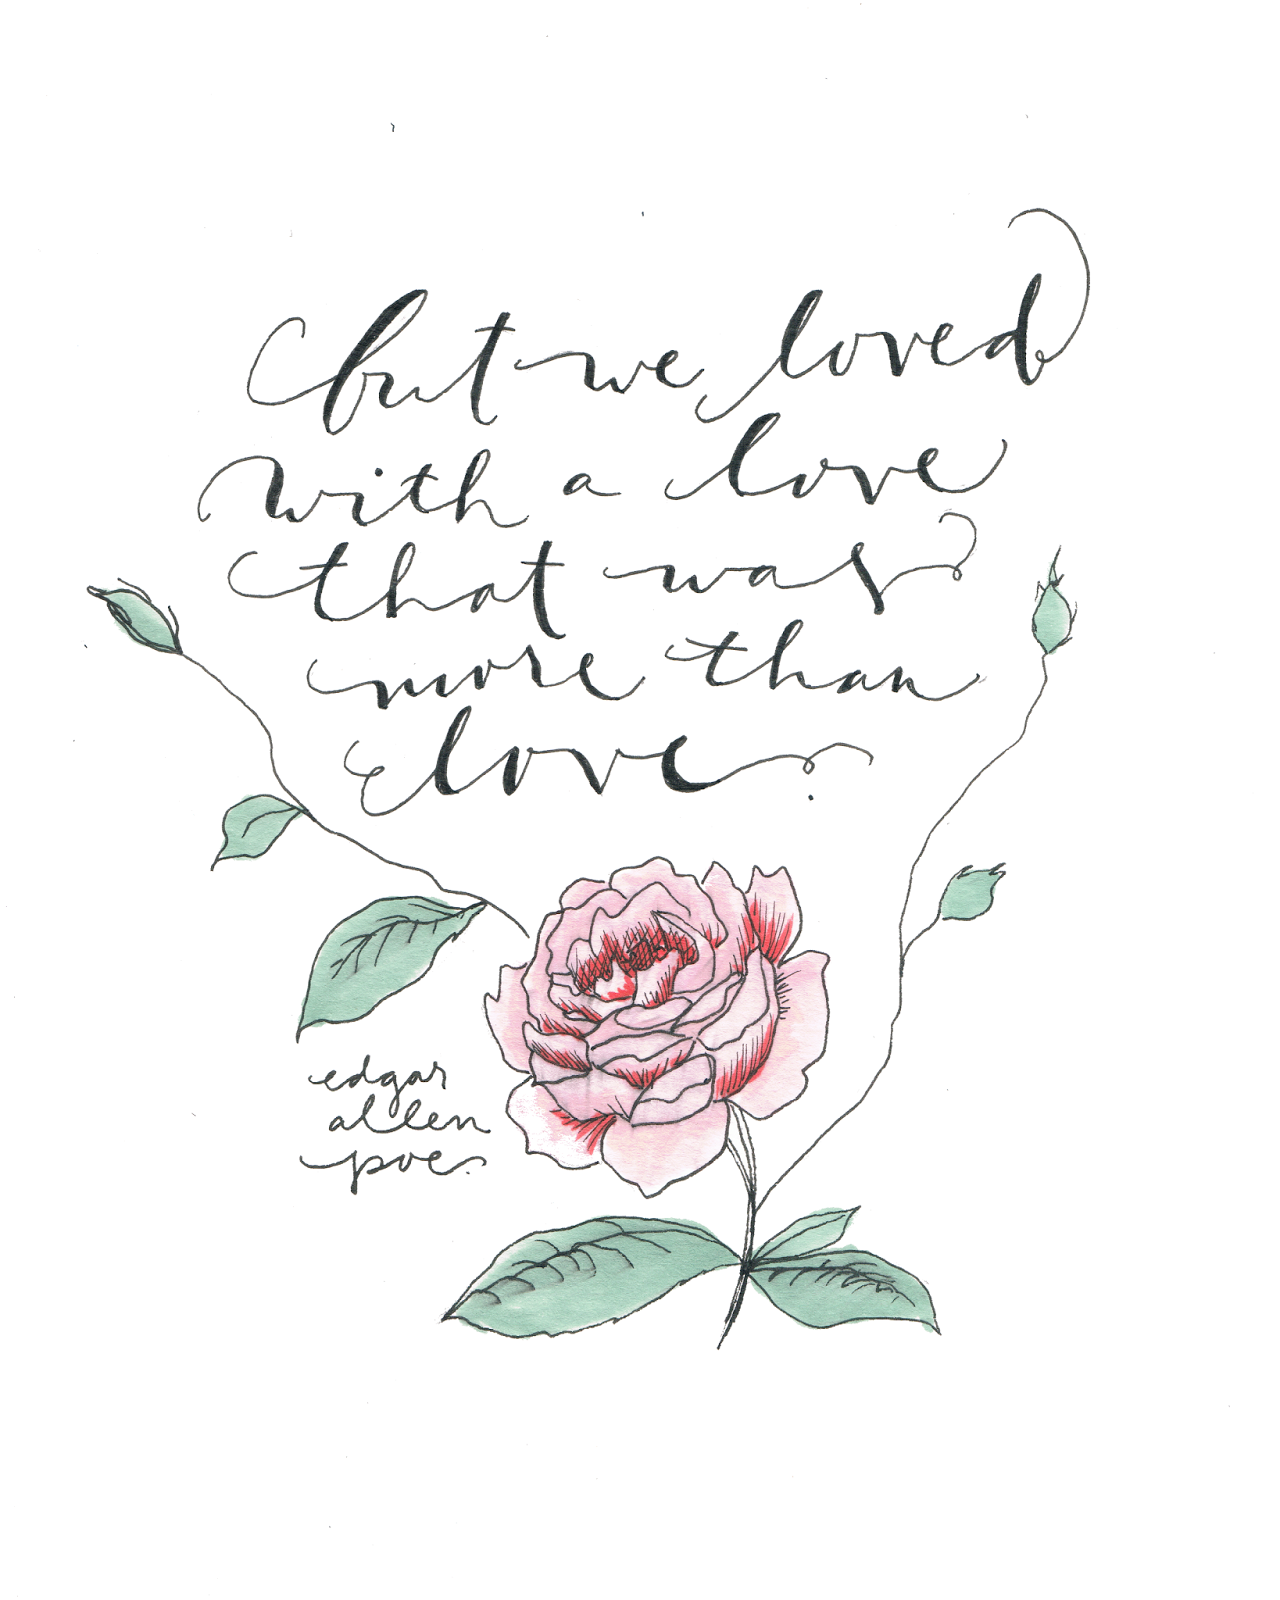 but we loved
with a love
that was
more than
love.
edgar
allen
poe.